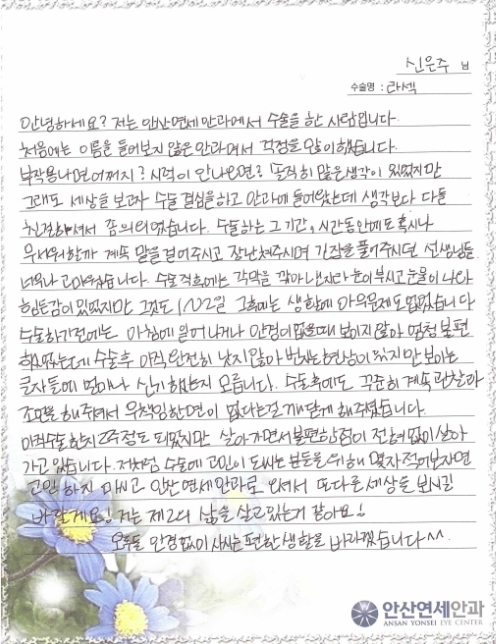 신은주 님
수술명 : 라섹
안녕하세요? 저는 안산연세안과에서 수술을 한 사람입니다.
처음에는 이름을 들어보지 않은 안과여서 걱정을 많이했습니다.
부작용나면어쩌지? 시력이 안나오면? 솔직히 많은생각이 있었지만
그래도 세상을 보고자 수술 결심을하고 안과에 들어왔는데 생각보다 다들
친절하셔서 좀의외였습니다. 수술하는 그 기간, 시간동안에도 혹시나
무서워할까 계속 말을걸어주시고 장난쳐주시며 긴장을 풀어주시던 선생님들
너무나 고마웠습니다. 수술 직후에는 각막을 깎아 낸지라 눈이 부시고 눈물이 나와
힘든감이 있었지만 그것도 1~2일 그후에는 생활에 아무문제도 없었습니다
수술하기전에는 아침에 일어나거나 안경이없을때 보이지않아 엄청 불편
했었는데 수술후 아직 완전히 낫지 않아 번지는현상이 있지만 보이는
글자들에 얼마나 신기했는지 모릅니다. 수술후에도 꾸준히 계속 관찰과
조언을 해주셔서 무책임한면이 없다는걸 깨닫게 해주셨습니다.
아직수술한지 2주정도 되었지만 살아가면서불편한점이 전혀없이살아
가고 있습니다. 저처럼 수술에 고민이 되시는 분들을 위해 몇자적어보자면
고민 하지 마시고 안산연세안과로 오셔서 또다른세상을 보시길
바랄게요! 저는 제2의 삶을 살고있는거 같아요!
모두들 안경없이 사시는 편한 생활을 바라겠습니다^^.
안산연세안과
ANSAN YONSEI EYE CENTER